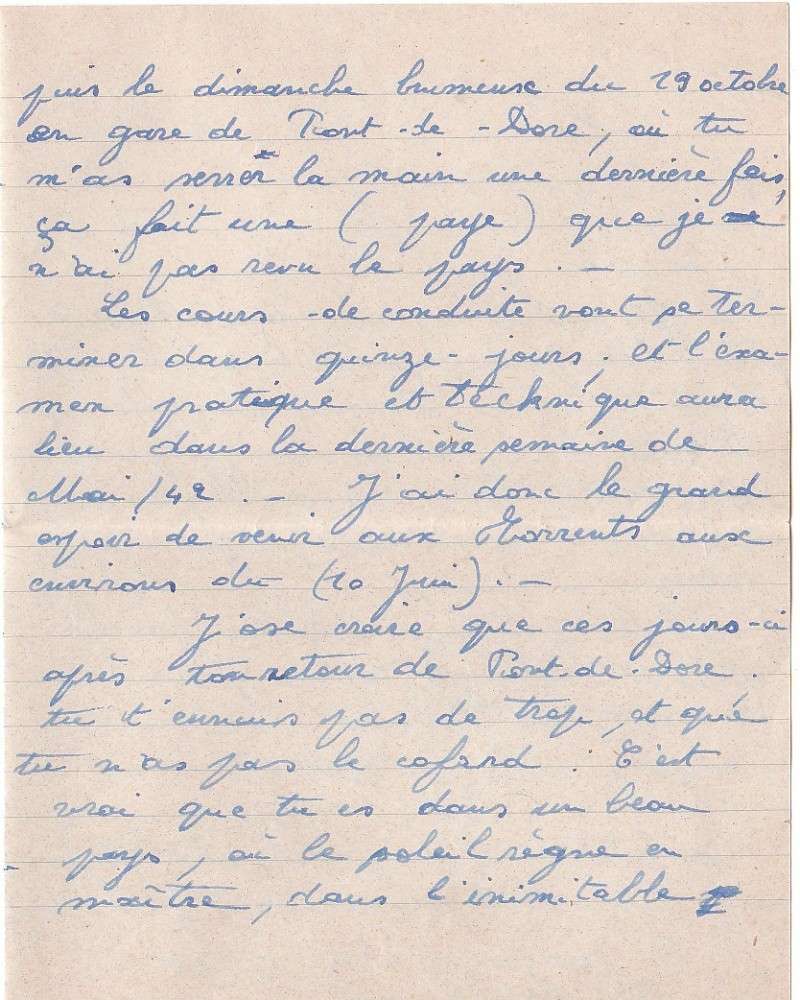 puis le dimanche brumeux du 19 octobre
en gare de Pont-de-Dore, où tu
m'as serrer la main une dernière fois,
ça fait une (paye) que je
n'ai pas revu le pays. —
Les cours de conduite vont se ter-
miner dans quinze-jours, et l'exa-
men pratique et technique aura
lieu dans la dernière semaine de
Mai/42. — J'ai donc le grand
espoir de venir aux Torrents aux
environs du (10 Juin). —
J'ose croire que ces jours-ci
après ton retour de Pont-de-Dore.
tu t'ennuis pas de trop, et que
tu n'as pas le cafard. C'est
vrai que tu es dans un beau
pays, où le soleil règne en
maître, dans l'inimitable